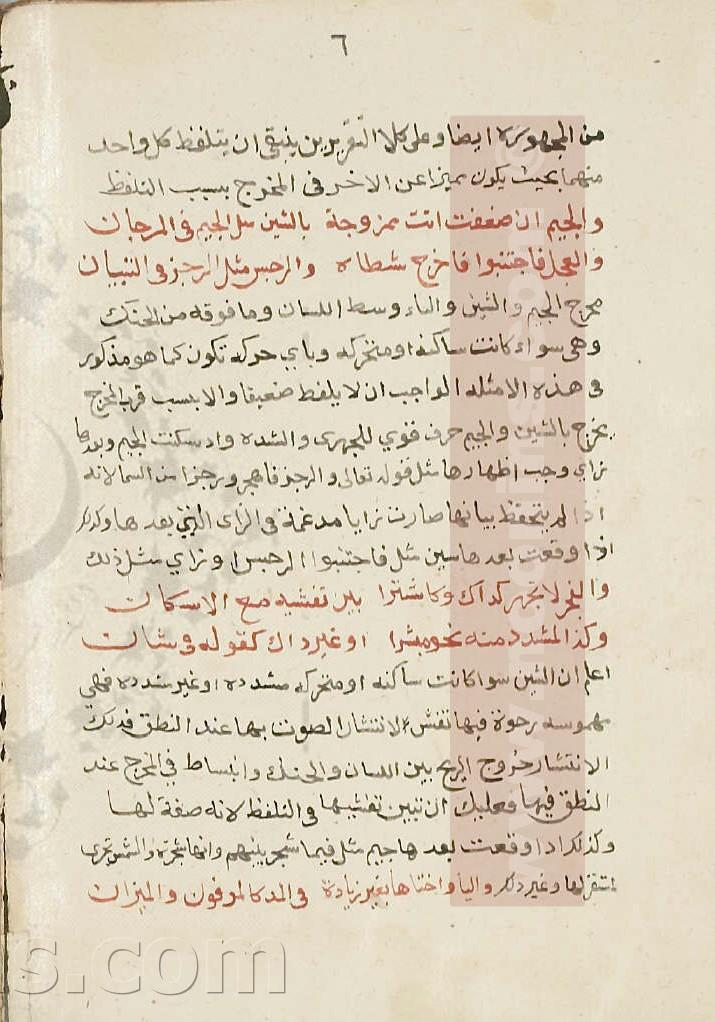 ٦
من المجهورة ايضا وعلى كلا التقريرين ينبغي ان يتلفظ كل واحد
منهما بحيث يكون مميزا عن الاخر في المخرج بسبب التلفظ
والجيم ان ضعفت اتت ممزوجة بالشين مثل الجيم في المرجان
والعجل فاجتنبوا فاخرج شطاه والرجس مثل الرجز في التبيان
مخرج الجيم والشين والياء وسط اللسان وما فوقه من الحنك
وهي سواء كانت ساكنة او متحركه وباي حركه تكون كما هو مذكور
في هذه الامثله الواجب ان لا يلفظ ضعيفا والا بسبب قرب المخرج
يخرج بالشين والجيم حرف قوي للجهرى والشده واد سكنت الجيم وبعدها
زاي وجب اظهارها مثل قوله تعالى والرجز فاهجر ورجزا من السما لانه
اذا لم يتحفظ بيانها صارت زايا مدغمة في الزاى التي بعدها وكذلك
اذا وقعت بعدها سين مثل فاجتنبوا الرجس او زاي مثل ذلك
والفجر لا تجهر كذاك وكاشترا بين تفشيه مع الاسكان
وكذا المشدد منه نحو مبشرا او غير ذاك كقوله في شان
اعلم ان الشين سوا كانت ساكنه او متحركه مشدده او غير مشدده فهي
مهموسه رخوة فيها تفش الانتشار الصوت بها عند النطق فذلك
الانتشار خروج الريح بين اللسان والحنك وانبساط في المخرج عند
النطق فيها فعليك ان تبين تفشيها في التلفظ لانه صفة لها
وكذلك اذا وقعت بعدها جيم مثل فيما شجر بينهم وانها شجرة والشمس تجرى
لمستقر لها وغير ذلك والياء واختاها بغير زيادة في المد كالموفون والميزان